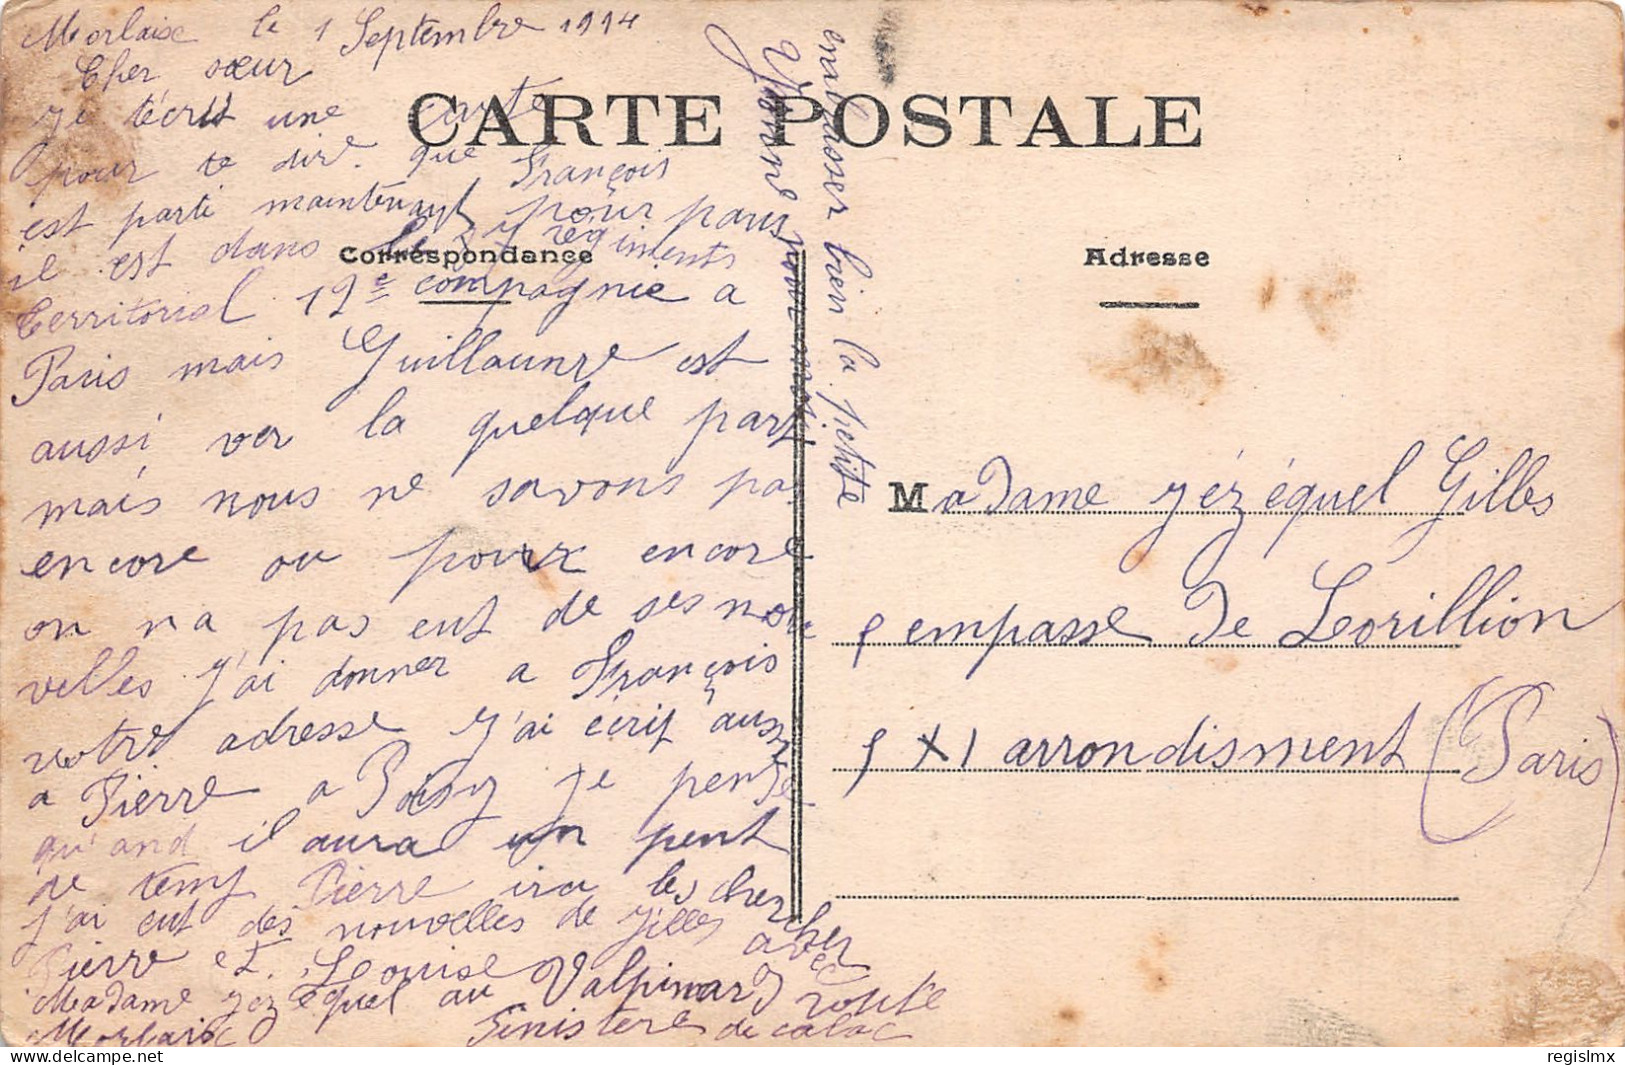 Morlaix le 1 Septembre 1914
Cher sœur
je t'écris une carte
pour te dire que François
est parti maintenant pour paris
il est dans le régiments
territorial 12e compagnie a
Paris mais Guillaunre est
aussi ver la quelque part
mais nous ne savons pas
encore ou pour encore
on n a pas eut de ses nou
velles j'ai donner a François
votre adresse j'ai écrit aussi
a Pierre a Poissy je pense
qu'and il aura un peut
de temp Pierre ira les chercher
j'ai eut des nouvelles de Gilles avec
Pierre et Louise
Madame yézéquel au Valpinard route
Morlaix Finistère de calac
embrasser bien la petite
Yvonne pour moi
CARTE POSTALE
Correspondance
Adresse
Madame yézéquel Gilles
5 empasse de Lorillion
5 XI arrondisment (Paris)
regislmx